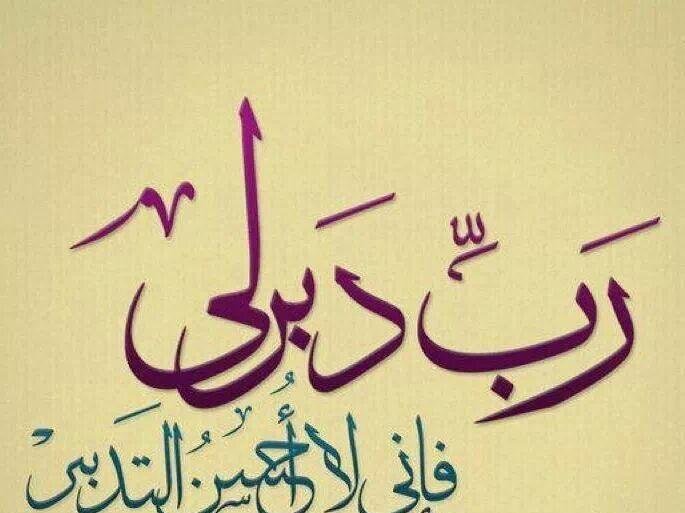 رَبِّ دَبر لي
فإني لا أُحسنُ التَدبير